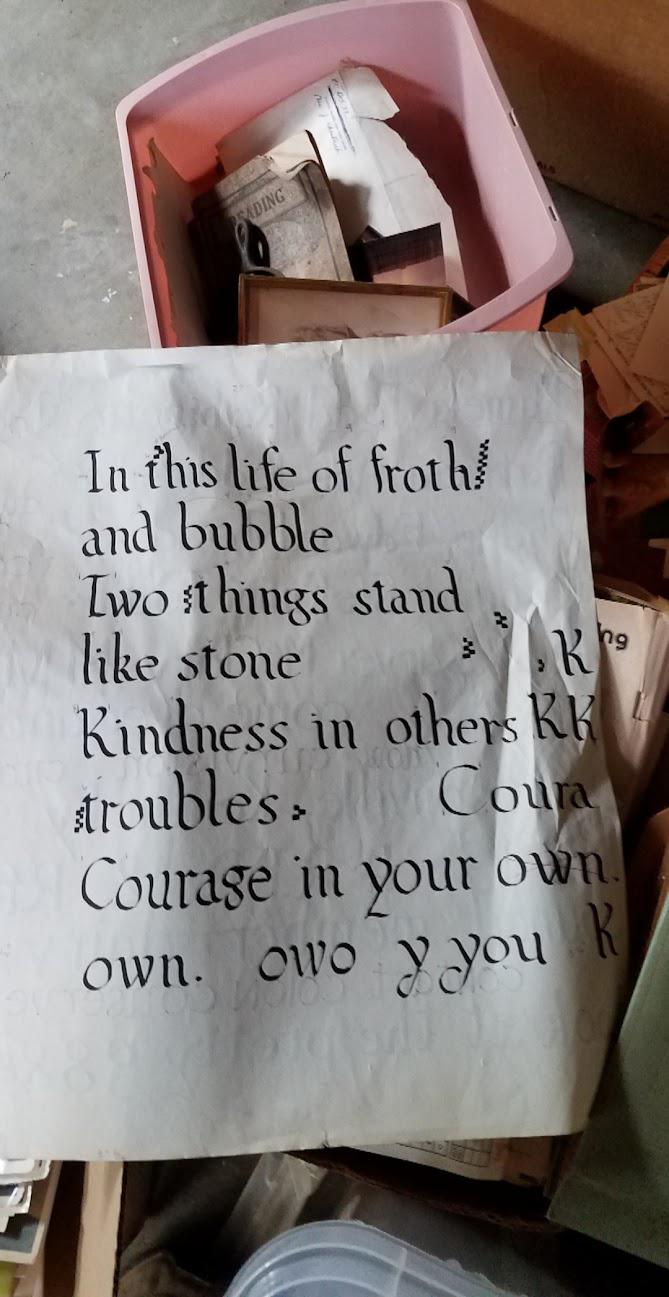 READING
ng
In this life of froth
and bubble
Two things stand
like stone , K
Kindness in others KK
troubles, Coura
Courage in your own.
own. owo y you K